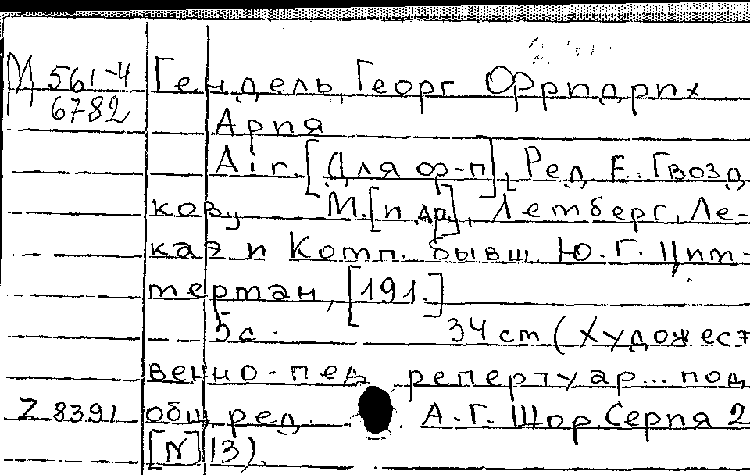 М 561-4 Гендель, Георг Фридрих
6782
Ария
Air. [Для ф-п], Ред. Е. Гвозд
кову М. [и др], Лемберг, Ле-
каэ и Комп. бывш. Ю. Г. Цим-
мерман, [191.]
5 с. 34 cm (Художест
венно-пед. репертуар... под
Z 8391 общ. ред. А. Г. Шор. Серия 2
[N] 13).